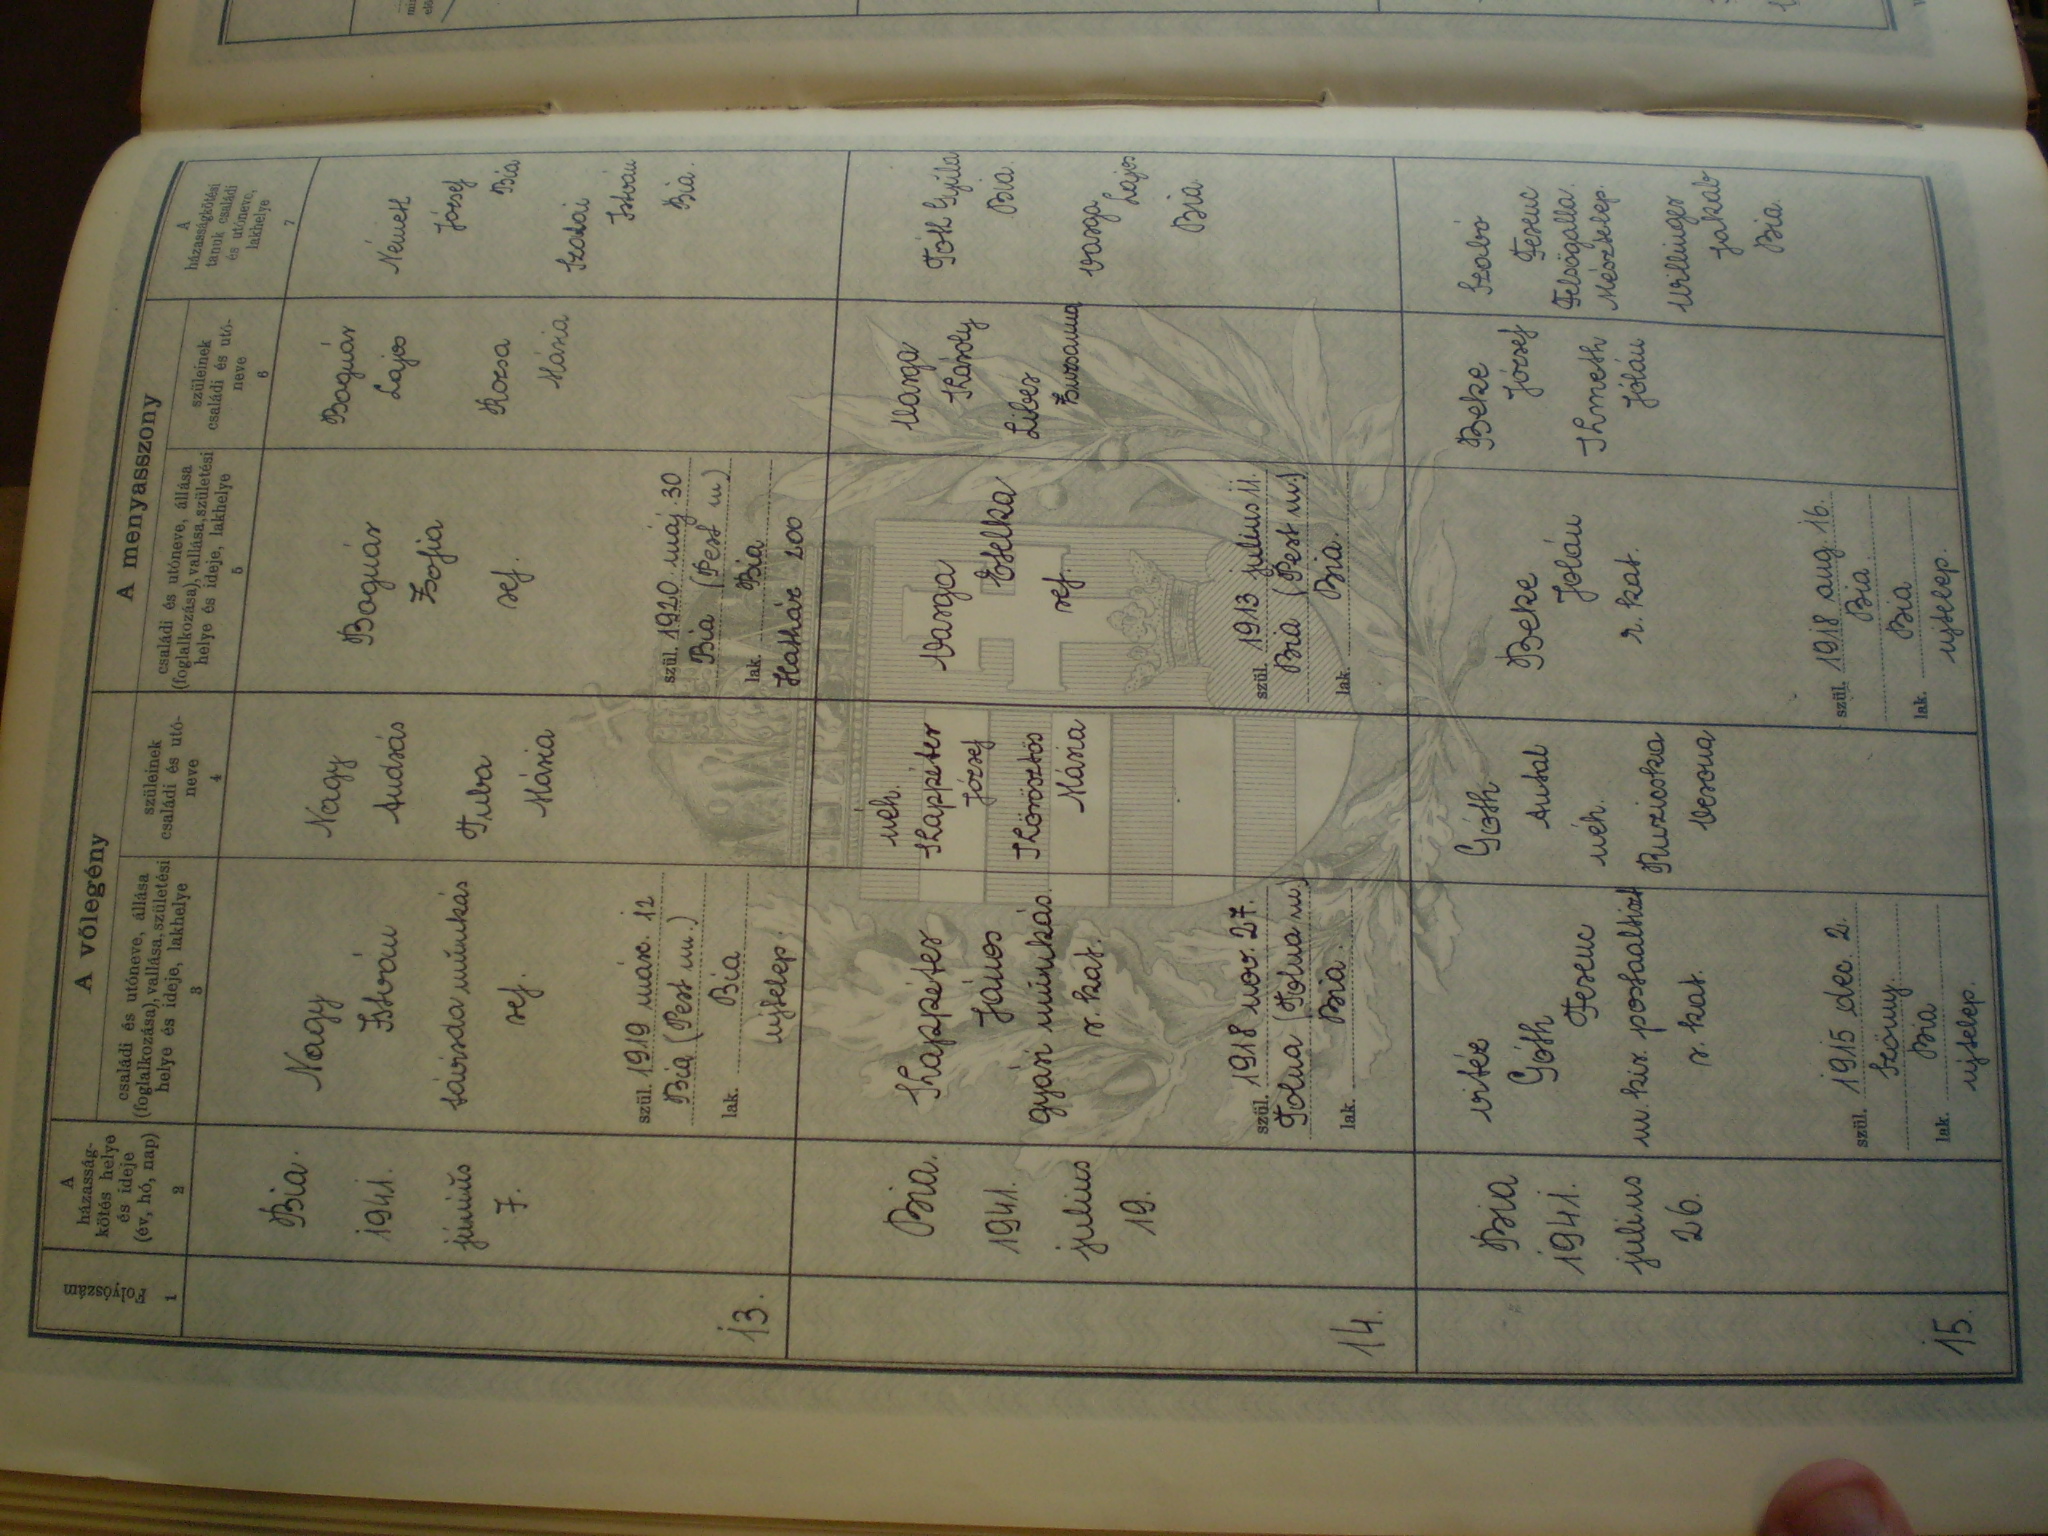 A vőlegény
A menyasszony
Folyószám
1
A
házasság-
kötés helye
és ideje
(év, hó, nap)
2
családi és utóneve, állása
(foglalkozása), vallása, születési
helye és ideje, lakhelye
3
szüleinek
családi és utó-
neve
4
családi és utóneve, állása
(foglalkozása), vallása, születési
helye és ideje, lakhelye
5
szüleinek
családi és utó-
neve
6
A
házasságkötési
tanuk családi
és utóneve,
lakhelye
7
13.
Bia.
1941.
június
7.
Nagy
István
távirda munkás
ref.
szül. 1919 márc. 12
Bia (Pest m.)
lak. Bia
ujtelep.
Nagy
András
Tuba
Mária
Bognár
Zofia
ref.
szül. 1920 máj. 30
Bia (Pest m)
lak. Bia
Határ 200
Bognár
Lajos
Kocsa
Mária
Németh
József
Bia
Szakai
István
Bia.
14.
Bia.
1941.
julius
19.
János
gyári munkás.
r. kat.
szül. 1918 nov. 27.
Tolna (Tolna m)
lak. Bia.
néh.
József
Mária
Varga
Etelka
ref.
szül. 1913 julius 11.
Bia (Pest m)
lak. Bia.
Varga
Károly
Liber
Zsuzsanna
Tóth Gyula
Bia.
Varga
Lajos
Bia.
15.
Bia
1941.
julius
26.
vitéz
Góth
Ferenc
m. kir. postaaltiszt
r. kat.
szül. 1915 dec. 2.
Szőny.
lak. Bia
ujtelep.
Góth
Antal
néh.
Ruzicska
Verona
Beke
Jolán
r. kat.
szül. 1918 aug. 16.
Bia.
lak. Bia
ujtelep.
Beke
József
Jolán
Szabó
Ferenc
Felsőgalla.
Mésztelep.
Willinger
Jakab
Bia.